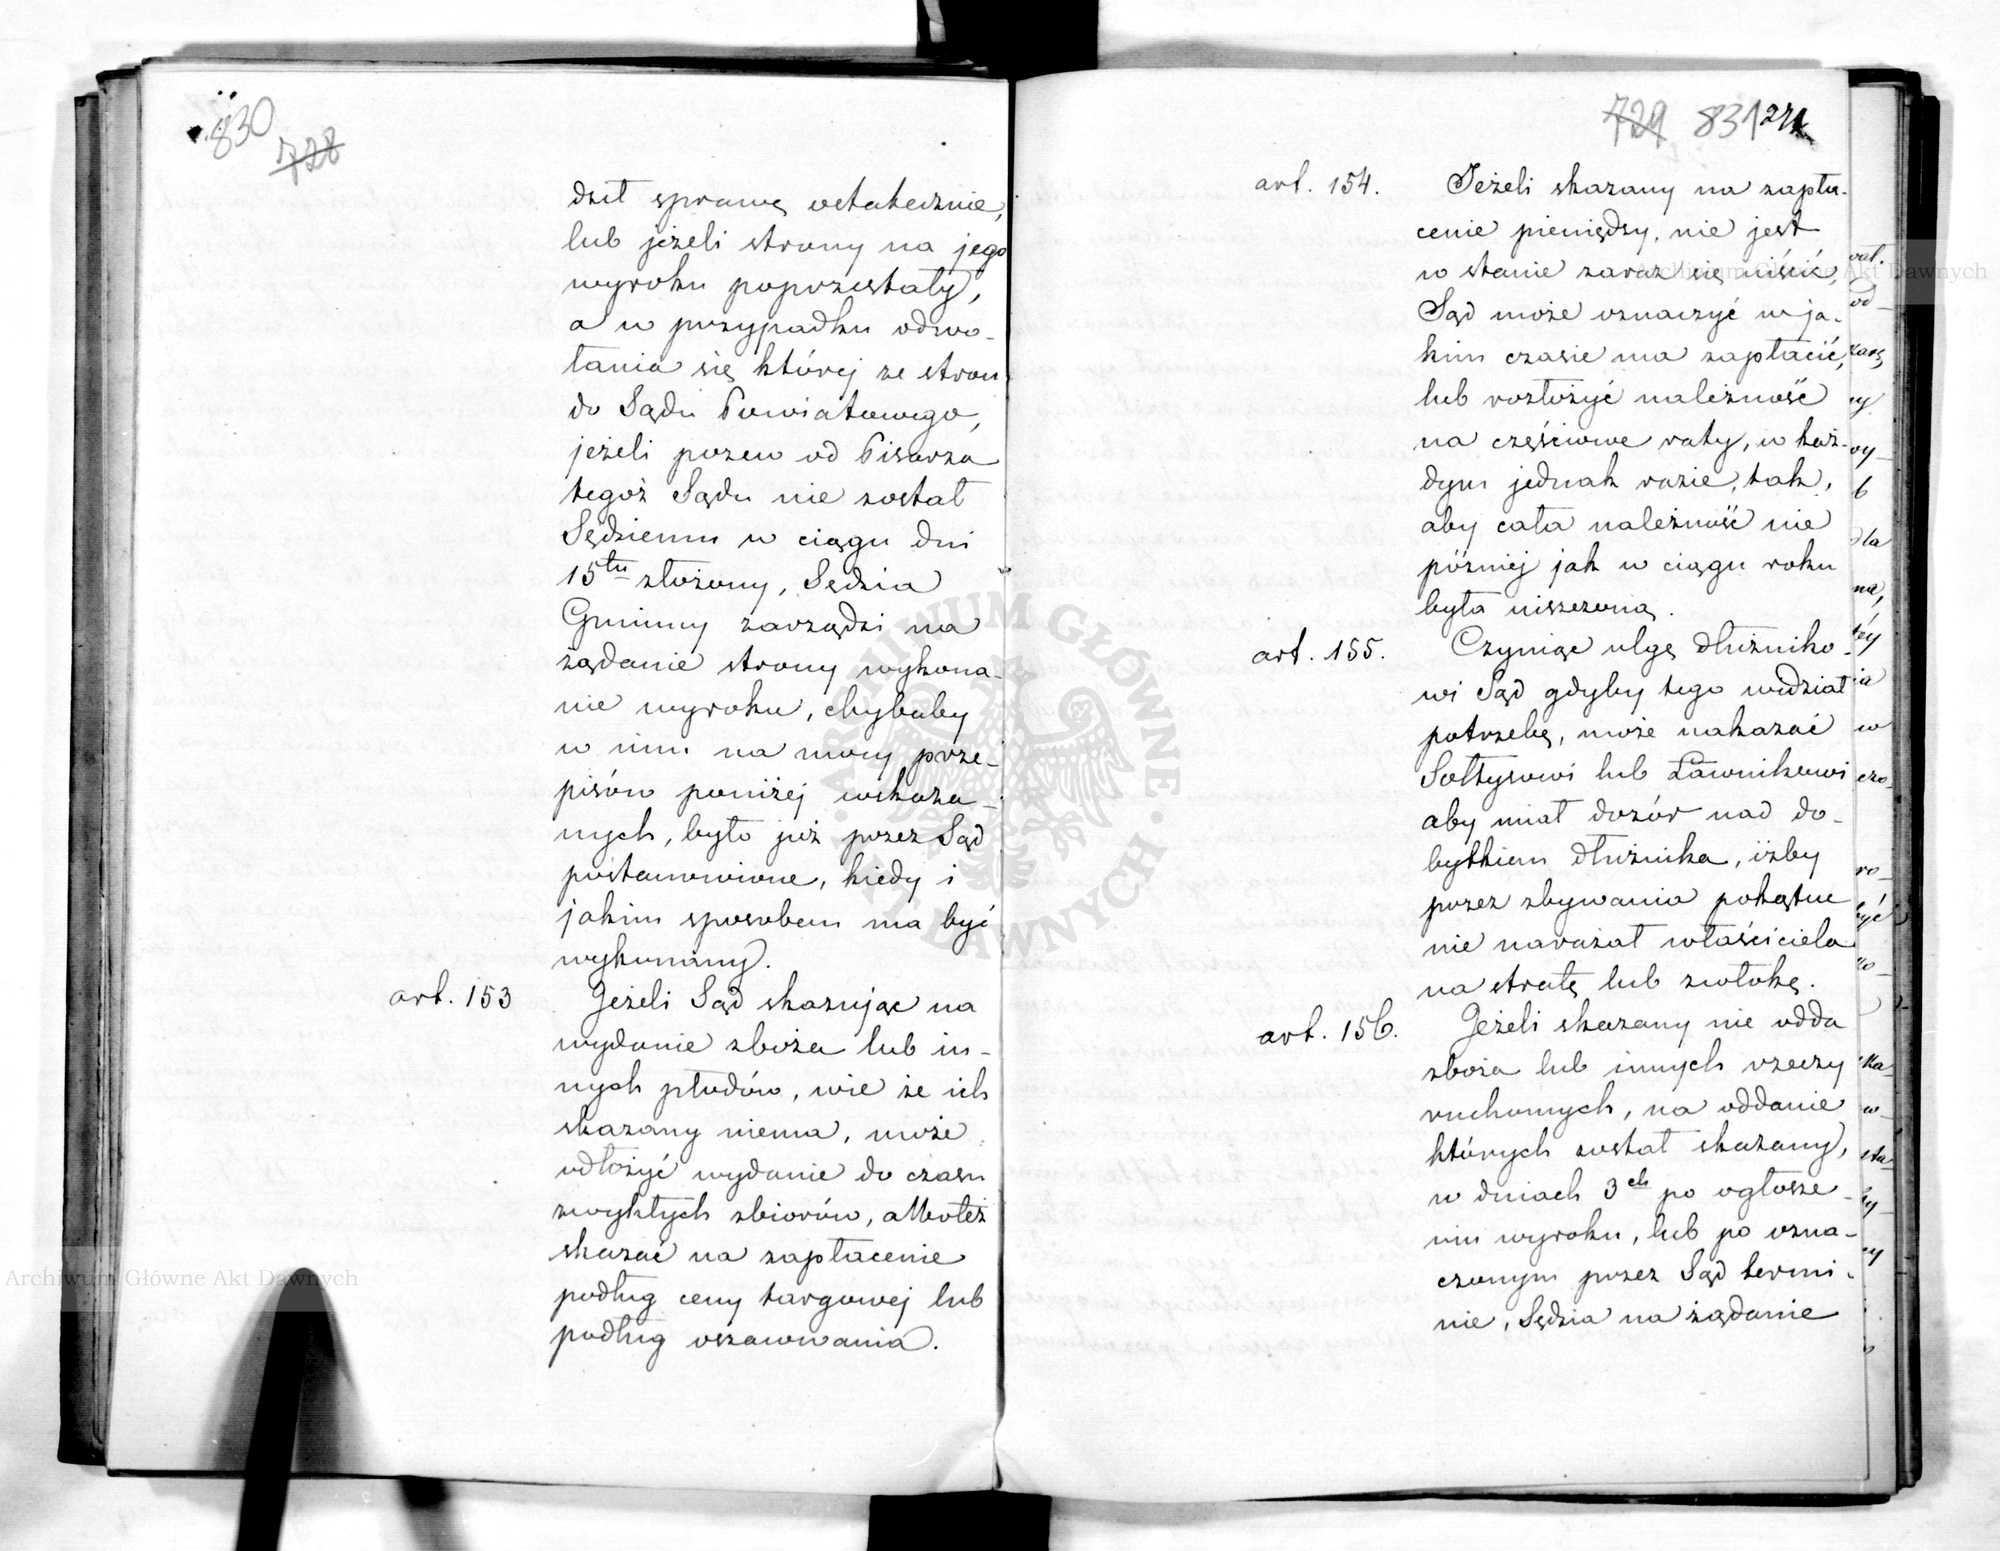 830
728
dził sprawę ostatecznie,
lub jeżeli strony na jego
wyroku poprzestały,
a w przypadku odwo-
łania się której ze stron
do Sądu Powiatowego,
jeżeli pozew od Pisarza
tegoż Sądu nie został
Sędziemu w ciągu dni
15tu złożony, Sędzia
Gminny zarządzi na
żądanie strony wykona-
nie wyroku, chybaby
w nim na mocy prze-
pisów poniżej wskaza-
nych, było już przez Sąd
postanowione, kiedy i
jakim sposobem ma być
wykonany.
art. 153 Jeżeli Sąd skazując na
wydanie zboża lub in-
nych płodów, wie że ich
skazany niema, może
odłożyć wydanie do czasu
zwykłych zbiorów, albo też
skazać na zapłacenie
podług ceny targowej lub
podług oszacowania.
729 831
art. 154. Jeżeli skazany na zapła-
cenie pieniędzy, nie jest
w stanie zaraz się uiścić,
Sąd może oznaczyć w ja-
kim czasie ma zapłacić,
lub rozłożyć należność
na częściowe raty, w każ-
dym jednak razie, tak,
aby cała należność nie
później jak w ciągu roku
była uiszczoną.
art. 155. Czyniąc ulgę dłużniko-
wi Sąd gdyby tego widział
potrzebę, może nakazać
Sołtysowi lub Ławnikowi
aby miał dozór nad do-
bytkiem dłużnika, iżby
przez zbywania pokątne
nie narażał właściciela
na stratę lub zwłokę.
art. 156. Jeżeli skazany nie odda
zboża lub innych rzeczy
ruchomych, na oddanie
których został skazany,
w dniach 3ch po ogłosze-
niu wyroku, lub po ozna-
czonym przez Sąd termi-
nie, Sędzia na żądanie
ARCHIWUM GŁÓWNE AKT DAWNYCH
Archiwum Główne Akt Dawnych
Archiwum Główne Akt Dawnych